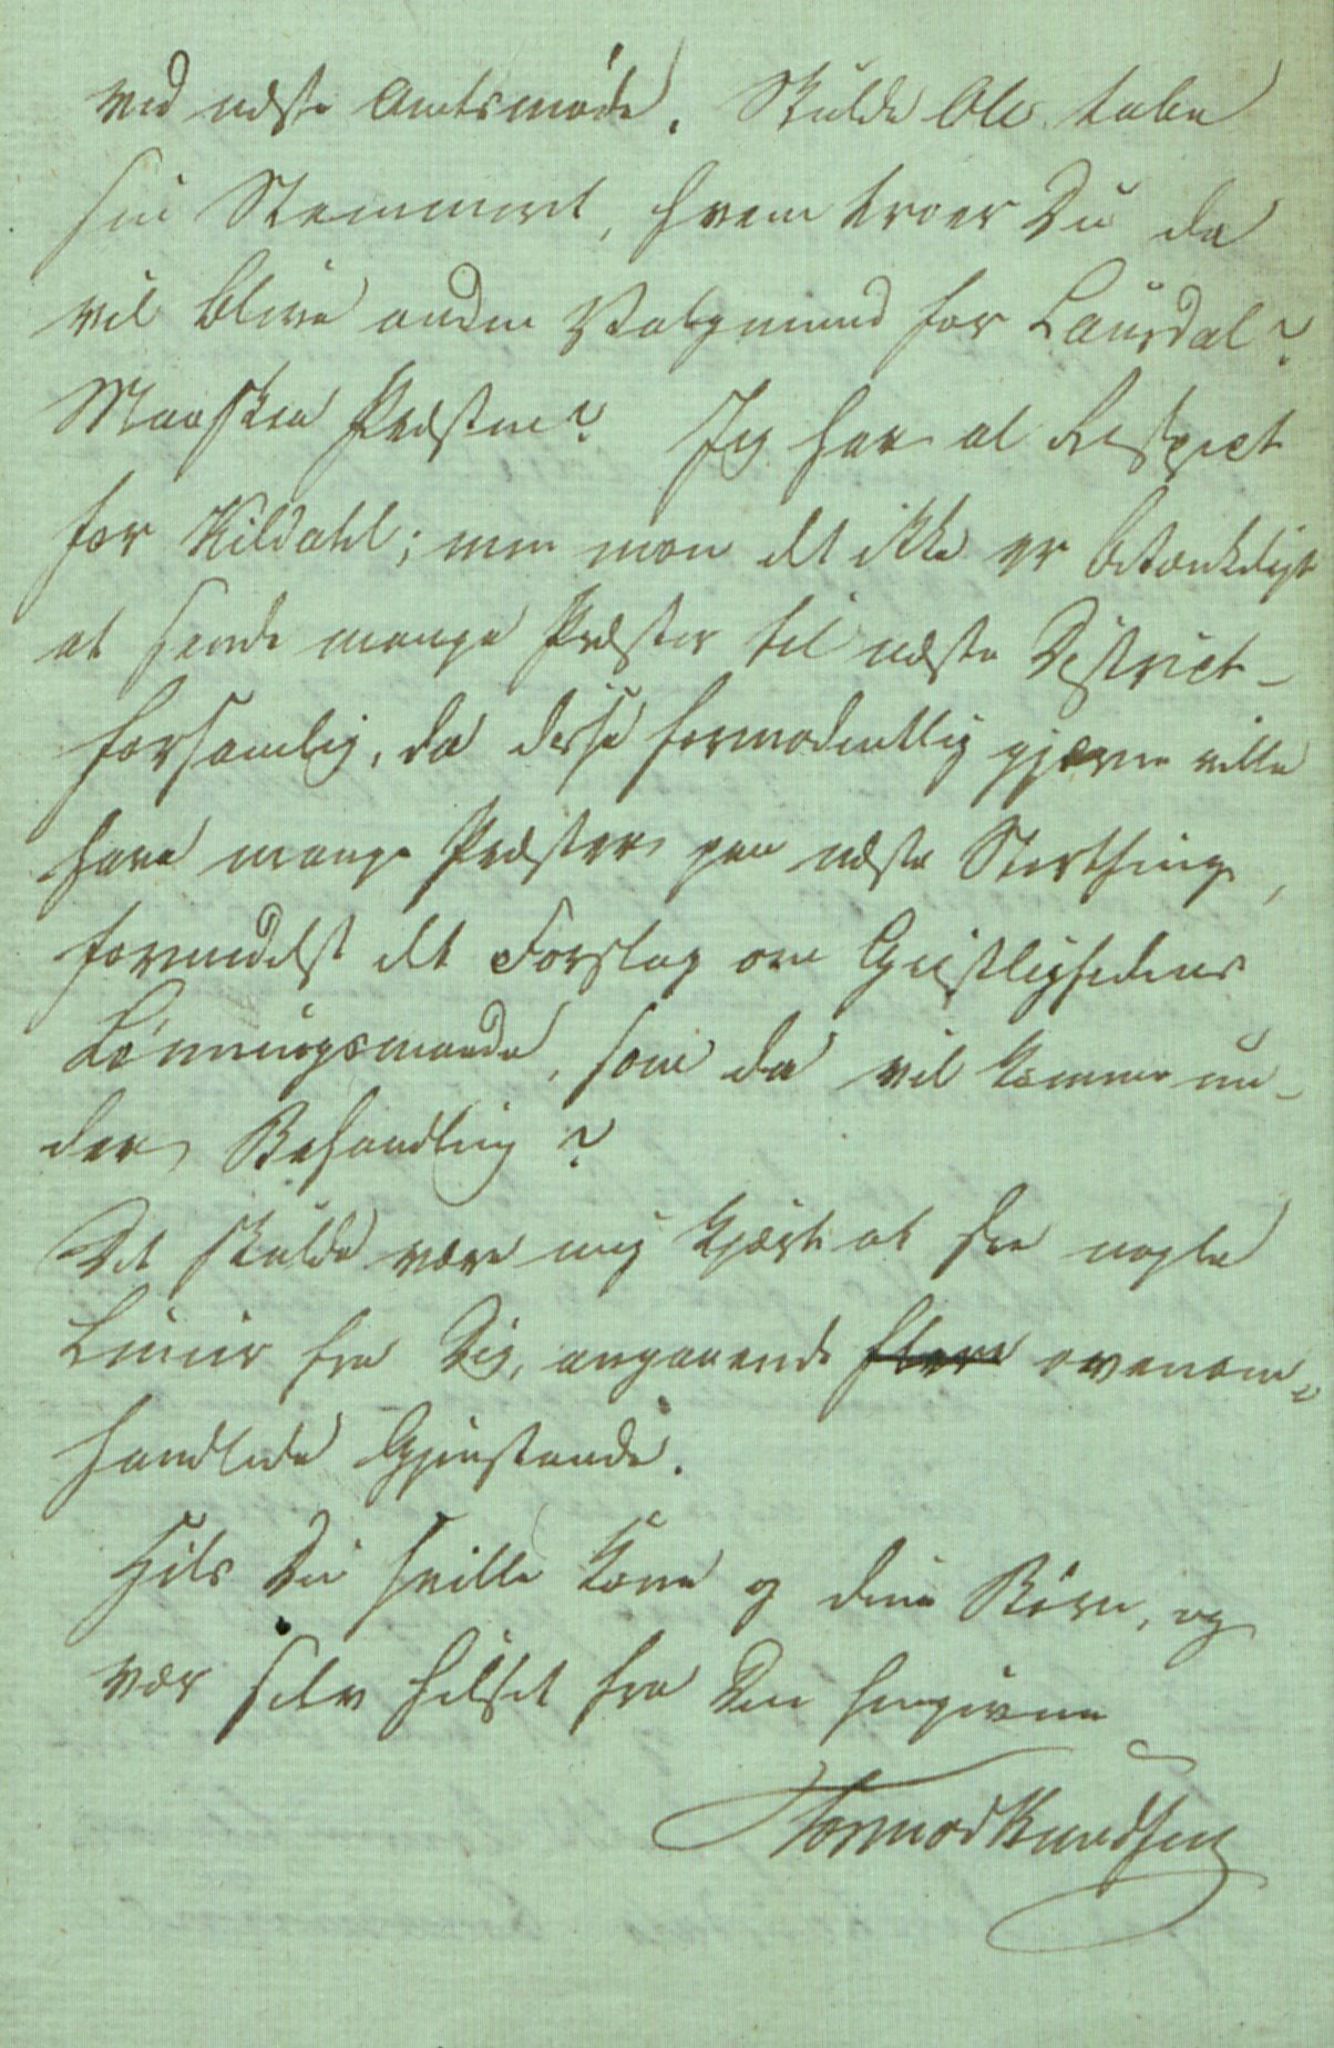 ved næste Amtsmøde. Skulde Ole tabe
sin Stemmeret, hvem troer Du da
vil blive anden Valgmand for Laurdal?
Maaskee Præsten? Jeg har al Respect
for Kildahl; men mon det ikke er betænkeligt
at sende mange Præster til næste District-
forsamling, da disse formodentlig gjærne ville
have mange Præster paa næste Storthing,
formedelst det Forslag om Geistlighedens
Lønningsmaade, som da vil komme un-
der Behandling?
Det skulde være mig kjært at see nogle
Linier fra Dig, angaaende flere ovenom-
handlede Gjenstande.
Hils Din snille Kone og dine Børn, og
vær selv hilset fra Din hengivne
Tormod Knudsen